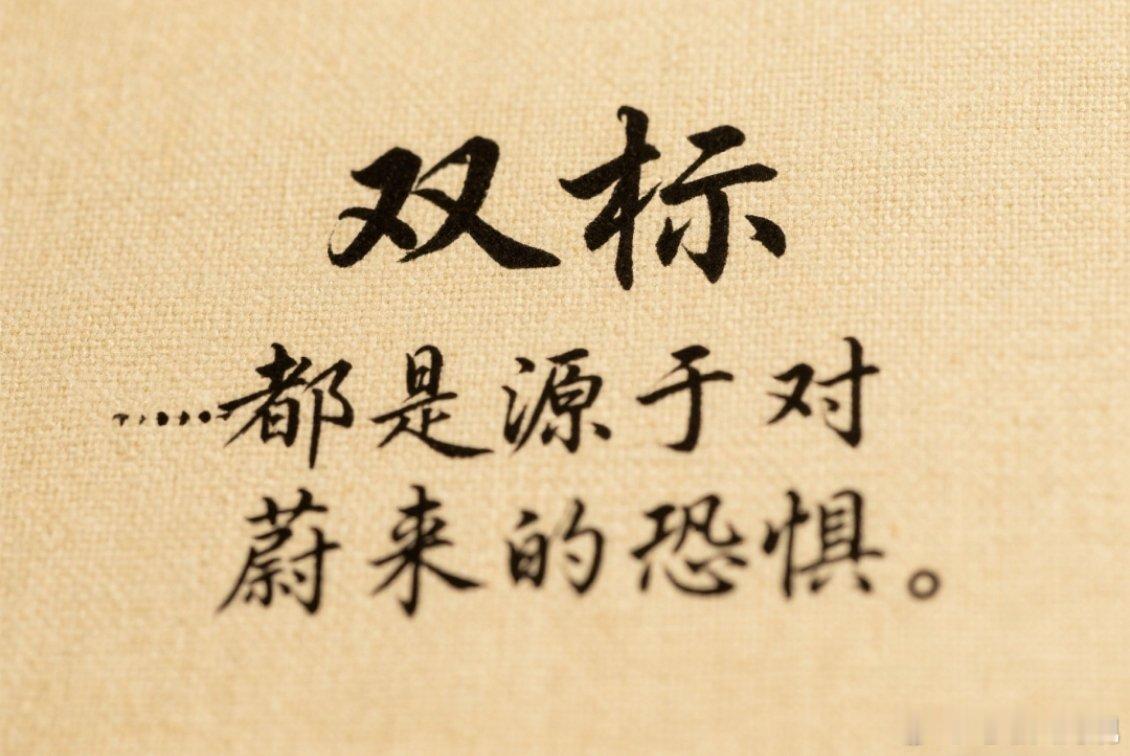 双标
......都是源于对
蔚来的恐惧。